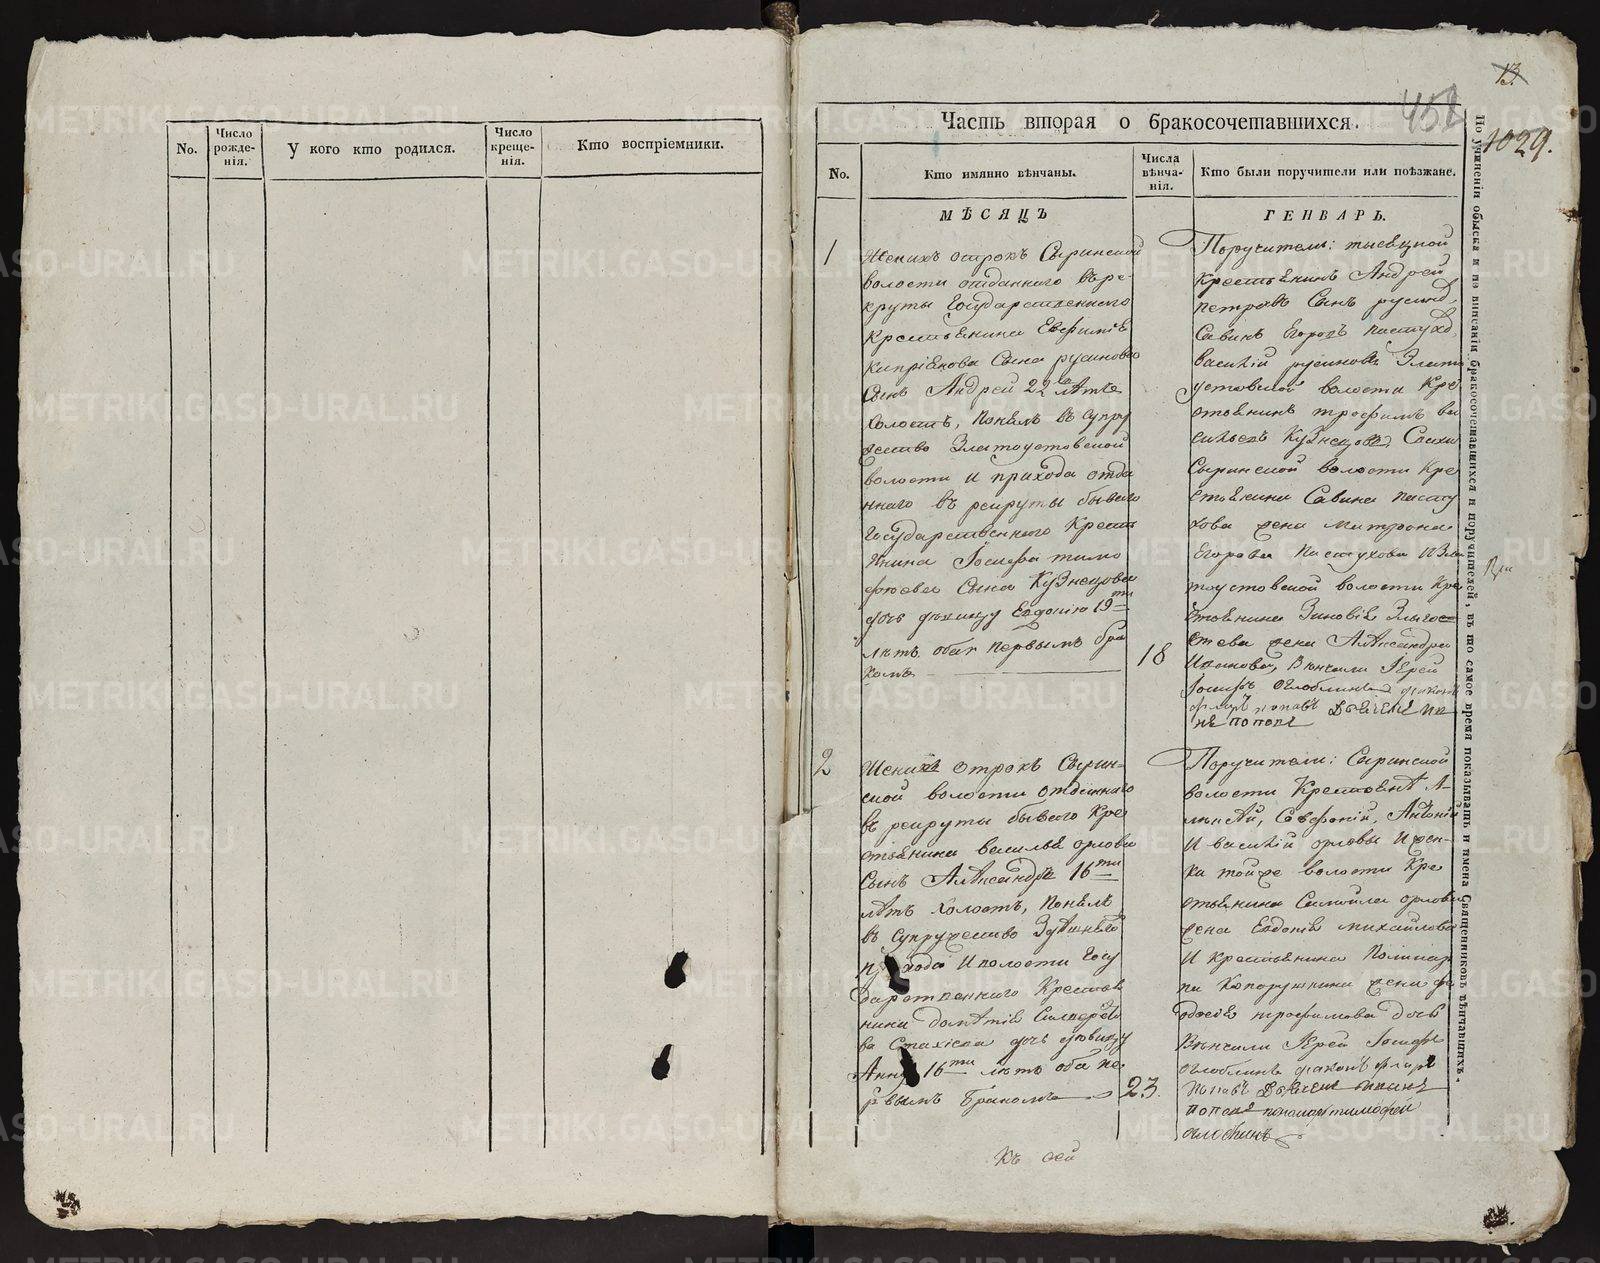 No.
Число рожде-нія.
У кого кто родился.
Число креще-нія.
Кто воспріемники.
13.
452
1029.
Часть вторая о бракосочетавшихся.
No.
Кто имянно вѣнчаны.
Числа вѣнча-нія.
Кто были поручители или поѣзжане.
МѢСЯЦЪ
ГЕНВАРЬ.
1
Женихъ отрокъ Сыринской
волости отданного въ ре-
круты Государственного
Крестьянина Евфимія
Кипріянова Сына русинова
Сынъ Андрей 22 лѣтъ
Холостъ, Понялъ въ Супру
жество Златоустовской
волости и прихода отда
нного въ рекруты бывшего
Государственного Кресть
янина Іосифа тимо
феева Сына Кузнецова
дочь дѣвицу Евдокію 19ти
лѣтъ оба первымъ бра
комъ
18
Поручители:
крестьянинъ Андрей
петровъ Сынъ русинъ
Савинъ Егоръ пастухъ
василій русиновъ Злато
устовской волости Кре
стьянинъ трофимъ ва
сильевъ Кузнецовъ Свахи
Сыринской волости Кре
стьянина Савина пасту
хова жена матрона
Егорова Пастухова и Зла
тоустовской волости Кре
стьянина Зиновія
жена Александра
Иванова, Вѣнчали Іерей
Іосифъ Оглоблинъ диаконъ
попавъ Дьячекъ
попавъ
2
Женихъ отрокъ Сырин-
ской волости отданного
въ рекруты бывшего Кре
стьянина василья орлова
Сынъ Александръ 16ти
лѣтъ Холостъ, Понялъ
въ Супружество Здѣшнего
прихода И волости Госу
дарственного Крестья
нина
дочь дѣвицу
Анну 16ти лѣтъ оба пе-
рвымъ бракомъ
23.
Поручители: Сыринской
волости Крестьяне А-
лексѣй, Софроній, Антоній
И василій орловы И жен-
ка тойже волости Кре
стьянина Самойла орлова
жена Евдокія михайлова
И крестьянина Поликар
па Копорушкина жена фе
досія трофимова дочь
Вѣнчали Іерей Іосифъ
оглоблинъ диаконъ
попавъ Дьячекъ
попавъ пономарь тимофей
оглоблинъ
Къ сей
По учиненіи обыска и по вписаніи бракосочетавшихся и поручителей, въ то самое время показывать и имена Священниковъ вѣнчавшихъ.
METRIKI.GASO-URAL.RU